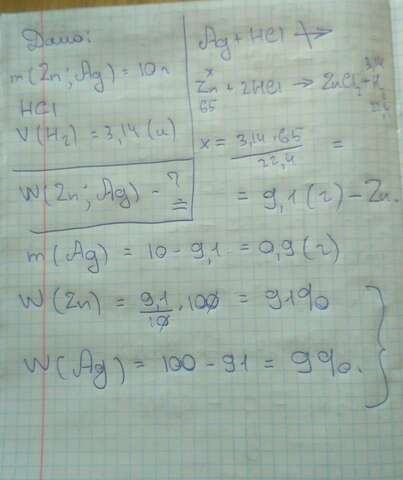 Дано:
m(Zn; Ag) = 10 г
HCl
V(H₂) = 3,14 (л)
W(Zn; Ag) - ?
Ag + HCl ↛
x 3,14
Zn + 2HCl → ZnCl₂ + H₂
65 22,4
x = 3,14 · 65 / 22,4 =
= 9,1 (г) - Zn.
m(Ag) = 10 - 9,1 = 0,9 (г)
W(Zn) = 9,1 / 10 · 100 = 91%
W(Ag) = 100 - 91 = 9%.